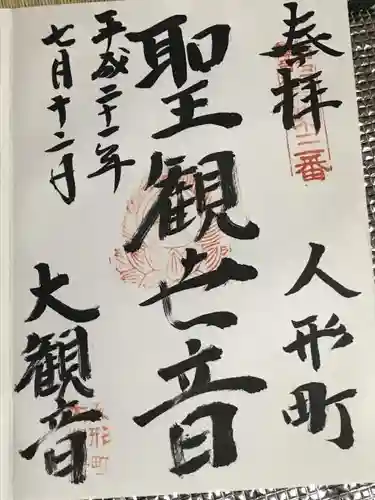 奉拝
三番
人形町
聖観世音
平成二十一年
七月十二日
大観音
人形町